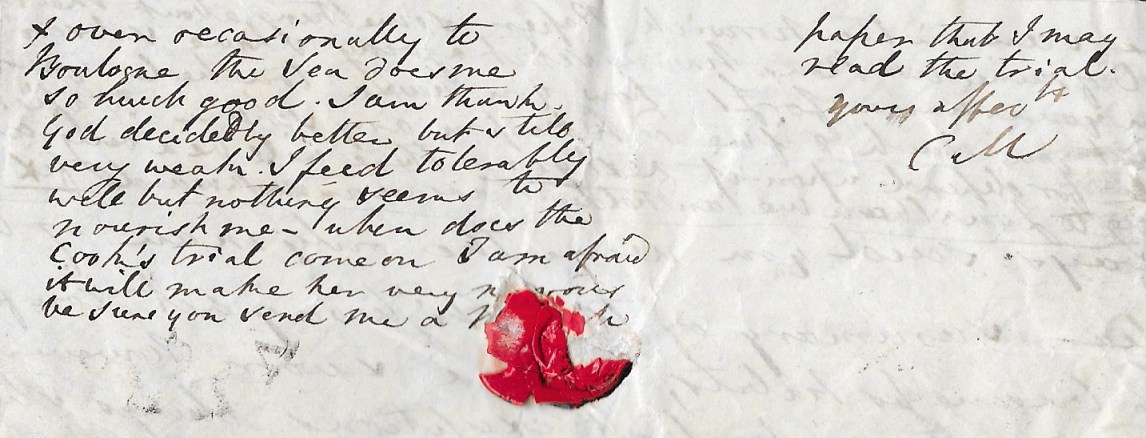 & over occasionally to
Boulogne the Sea does me
so much good. I am thank
God decidedly better but still
very weak. I feed tolerably
well but nothing seems to
nourish me - when does the
Cook's trial come on I am afraid
it will make her very
be sure you send me a
paper that I may
read the trial.
yours affecly
CM